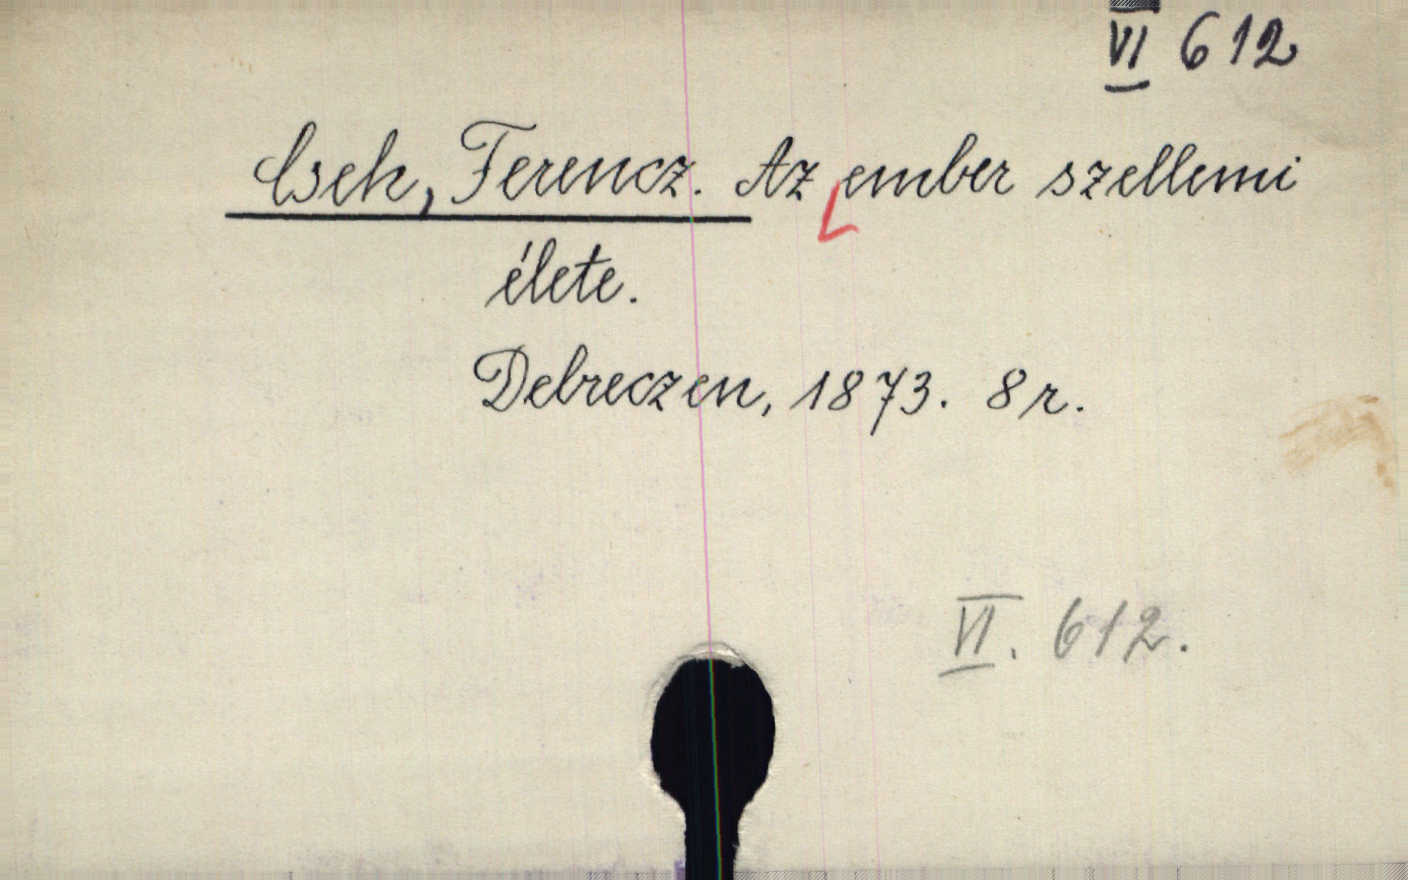 VI 612
Csek, Ferencz. Az ember szellemi
élete.
Debreczen, 1873. 8r.
VI. 612.